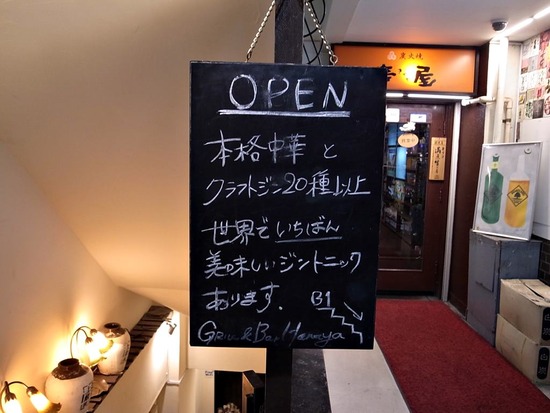 OPEN
本格中華と
クラフトジン20種以上
世界でいちばん
美味しいジントニック
あります。
B1
炭火焼